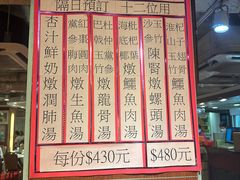 隔日預訂 十二位用
淮山杞子燉鱷魚肉湯
沙參玉竹陳腎燉螺頭湯
海底椰枇杷葉燉鱷魚肉湯
巴戟杜仲玉竹黨參燉龍骨湯
黨參紅棗圓肉燉生魚湯
杏汁鮮奶燉潤肺湯
每份$430元
$480元